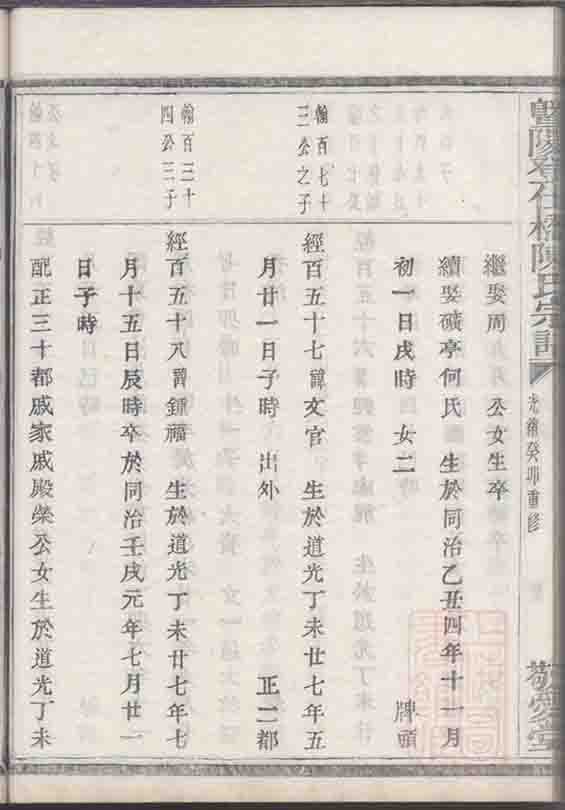 暨陽
石橋陳氏宗譜
光緒癸卯重修
敬愛堂
繼娶周 公女生卒
續娶礦亭何氏 生於同治乙丑四年十一月
初一日戌時 女二 牌頭
翰百七十
三公之子
經百五十七諱文官 生於道光丁未廿七年五
月廿一日子時 出外 正二都
翰百三十
四公三子
經百五十八諱鍾福 生於道光丁未廿七年七
月十五日辰時卒於同治壬戌元年七月廿一
日子時
配正三十都戚家戚殿榮公女生於道光丁未